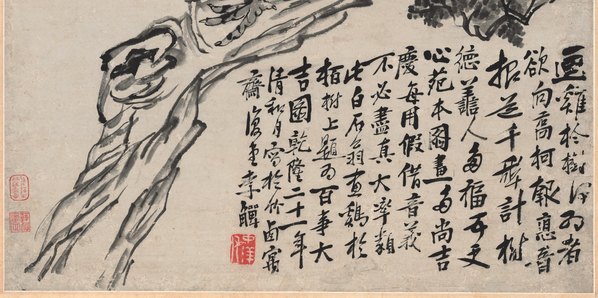 畫雞於樹何為者
欲向高柯報音
招千計樹
德人多福更
心范本圖畫多尚吉
慶每用假借音義
不必盡真大率類
此白石翁畫於
栢樹上題為百事大
吉圖乾隆二十一年
清和月寫於竹西寓
齋復堂李鱓